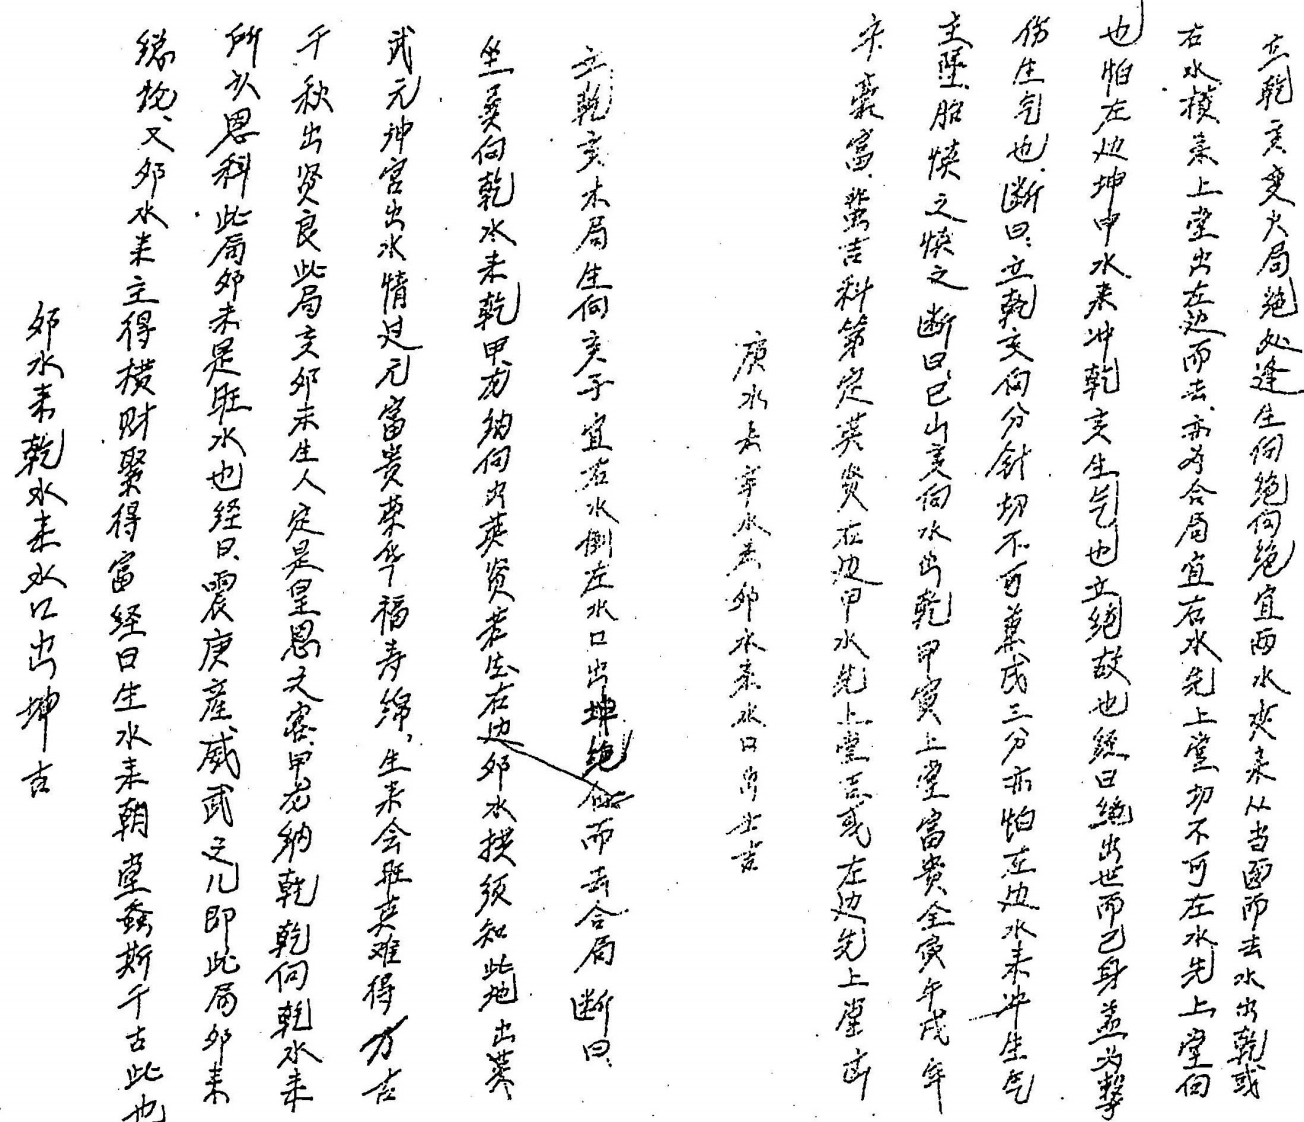 立乾亥变火局绝处逢生向绝向绝宜两水夹来从当面而去水出乾或
右水横来上堂出左边而去亦为合局宜右水先上堂切不可左水先上堂向
也怕左边坤申水来冲乾亥生气也立绝故也经曰绝出世而己身盖为击
伤生气也断曰立乾亥向分针切不可兼戌三分亦怕左边水来冲生气
主坠胎慎之慎之断曰巳山亥向水出乾甲寅上堂富贵全寅午戌年
富吉科第定英贤右边甲水先上堂吉或左边先上堂凶
庚水长宁水卯水来水口出吉
立乾亥木局生向亥子宜右水倒左水口出坤绝而去合局断曰
坐巽向乾水来乾甲龙纳向出英贤若出右边卯水拱须知此地出
武元坤宫出水情过元富贵荣华福寿绵生来会旺真难得方吉
千秋出贤良此局亥卯未生人定是皇恩之客甲龙纳乾乾向乾水来
所以恩科此局卯未是旺水也经曰震庚产威武之儿即此局卯来
总论又卯水来主得横财聚得富经曰生水来朝堂螽斯千古此也
卯水来乾水来水口出坤吉